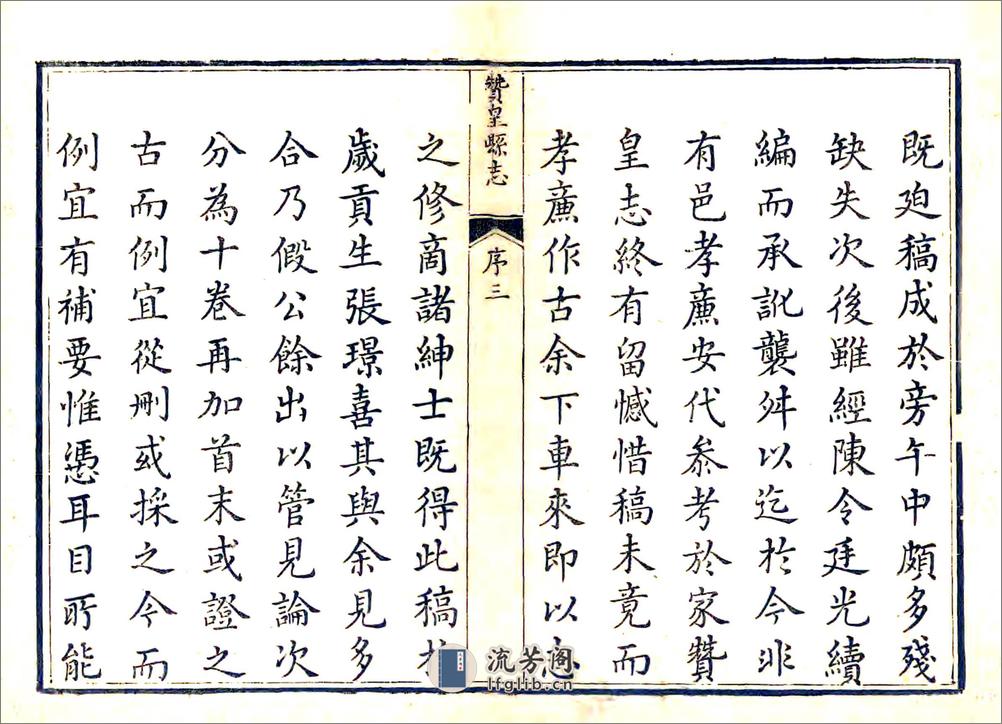 既廹稿成於旁午中頗多殘
缺失次後雖經陳令廷光續
編而承訛襲舛以迄於今非
有邑孝廉安代叅考於家贊
皇志終有留憾惜稿未竟而
孝廉作古余下車來即以志
贊皇縣志
序三
之修商諸紳士既得此稿於
歲貢生張璟喜其與余見多
合乃假公餘出以管見論次
分為十卷再加首末或證之
古而例宜從刪或採之今而
例宜有補要惟憑耳目所能
流芳阁
lfglib.cn